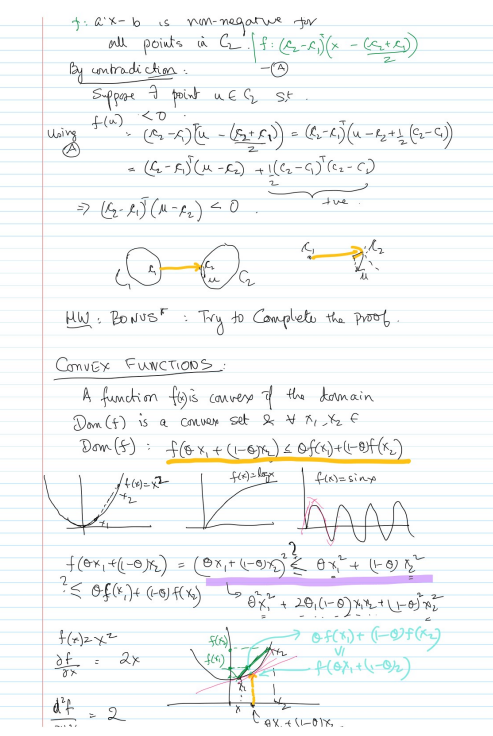 f: aᵀx - b is non-negative for
all points in C₂. | f: (c₂-c₁)ᵀ(x - (c₂+c₁)/2)
By contradiction: - Ⓐ
Suppose ∃ point u ∈ C₂ s.t.
f(u) < 0
Using Ⓐ = (c₂-c₁)ᵀ(u - (c₂+c₁)/2) = (c₂-c₁)ᵀ(u-c₂+½(c₂-c₁))
= (c₂-c₁)ᵀ(u-c₂) + ½(c₂-c₁)ᵀ(c₂-c₁)
+ve
⇒ (c₂-c₁)ᵀ(u-c₂) < 0.
C₁ c₁ c₂ u C₂ c₁ c₂ u
HW: BONUS*: Try to Complete the proof.
CONVEX FUNCTIONS:
A function f(x) is convex if the domain
Dom(f) is a convex set & ∀ x₁, x₂ ∈
Dom(f): f(θx₁+(1-θ)x₂) ≤ θf(x₁)+(1-θ)f(x₂)
f(x)=x² f(x)=logx f(x)=sinx
x₁ x₂
f(θx₁+(1-θ)x₂) = (θx₁+(1-θ)x₂)² ?≤ θx₁² + (1-θ)x₂²
?≤ θf(x₁)+(1-θ)f(x₂) ↳ θ²x₁² + 2θ(1-θ)x₁x₂ + (1-θ)²x₂²
f(x)=x² f(x₂) → θf(x₁)+(1-θ)f(x₂)
∂f/∂x = 2x f(x₁) x₁ x₂ VI
f(θx₁+(1-θ)x₂)
d²f = 2 x x₂
θx₁+(1-θ)x₂